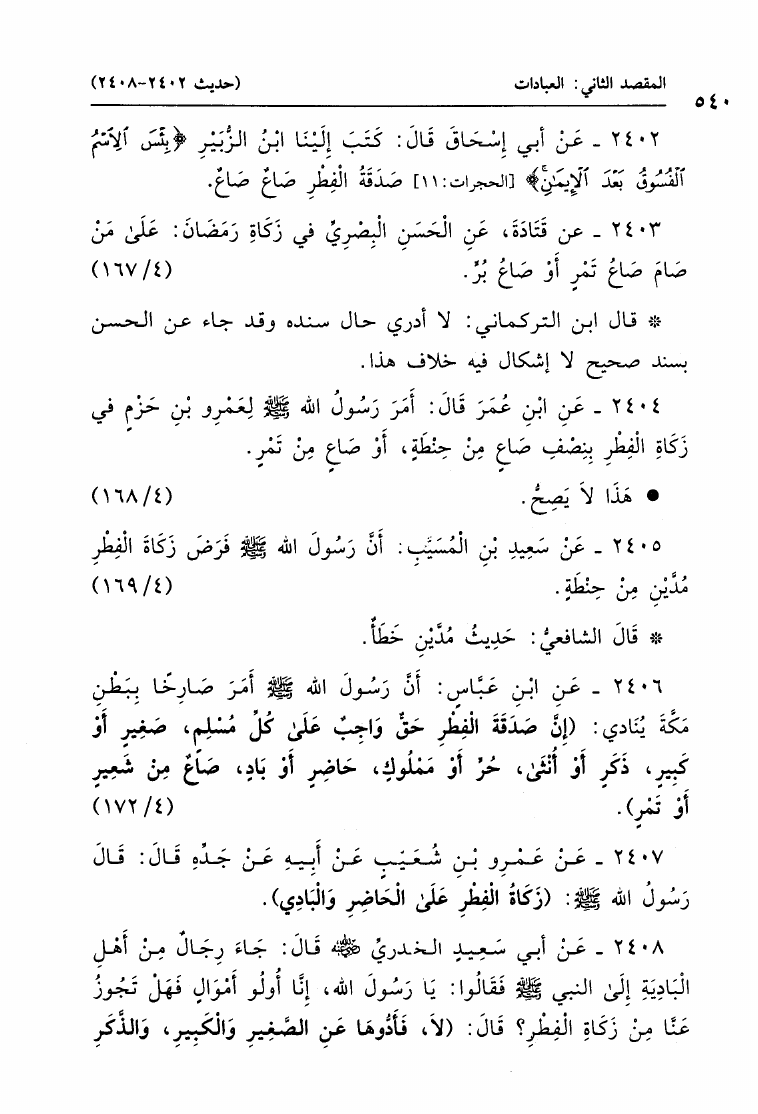 المقصد الثاني: العبادات (حديث ٢٤٠٢-٢٤٠٨)
٥٤٠
٢٤٠٢ ـ عَنْ أبي إسْحَاقَ قَالَ: كَتَبَ إلَيْنَا ابْنُ الزُّبَيْرِ ﴿بِئْسَ ٱلِٱسْمُ
ٱلْفُسُوقُ بَعْدَ ٱلْإِيمَٰنِۚ﴾ [الحجرات:١١] صَدَقَةُ الْفِطْرِ صَاعٌ صَاعٌ.
٢٤٠٣ ـ عن قَتَادَةَ، عَنِ الْحَسَنِ الْبِصْرِيِّ في زَكَاةِ رَمَضَانَ: عَلَىٰ مَنْ
صَامَ صَاعُ تَمْرٍ أَوْ صَاعُ بُرٍّ. (١٦٧/٤)
* قال ابن التركماني: لا أدري حال سنده وقد جاء عن الحسن
بسند صحيح لا إشكال فيه خلاف هذا.
٢٤٠٤ ـ عَنِ ابْنِ عُمَرَ قَالَ: أَمَرَ رَسُولُ الله ﷺ لِعَمْرِو بْنِ حَزْمٍ في
زَكَاةِ الْفِطْرِ بِنِصْفِ صَاعٍ مِنْ حِنْطَةٍ، أَوْ صَاعٍ مِنْ تَمْرٍ.
● هَذَا لاَ يَصِحُّ. (١٦٨/٤)
٢٤٠٥ ـ عَنْ سَعِيدِ بْنِ الْمُسَيَّبِ: أَنَّ رَسُولَ الله ﷺ فَرَضَ زَكَاةَ الْفِطْرِ
مُدَّيْنِ مِنْ حِنْطَةٍ. (١٦٩/٤)
* قَالَ الشافعيُّ: حَدِيثُ مُدَّيْنِ خَطَأٌ.
٢٤٠٦ ـ عَنِ ابْنِ عَبَّاسٍ: أَنَّ رَسُولَ الله ﷺ أَمَرَ صَارِخًا بِبَطْنِ
مَكَّةَ يُنَادي: (إنَّ صَدَقَةَ الْفِطْرِ حَقٌّ وَاجِبٌ عَلَىٰ كُلِّ مُسْلِمٍ، صَغِيرٍ أَوْ
كَبِيرٍ، ذَكَرٍ أَوْ أُنْثَىٰ، حُرٍّ أَوْ مَمْلُوكٍ، حَاضِرٍ أَوْ بَادٍ، صَاعٌ مِنْ شَعِيرٍ
أَوْ تَمْرٍ). (١٧٢/٤)
٢٤٠٧ ـ عَنْ عَمْرِو بْنِ شُعَيْبٍ عَنْ أَبِيهِ عَنْ جَدِّهِ قَالَ: قَالَ
رَسُولُ الله ﷺ: (زَكَاةُ الْفِطْرِ عَلَىٰ الْحَاضِرِ وَالْبَادِي).
٢٤٠٨ ـ عَنْ أبي سَعِيدٍ الخدريِّ رضي الله عنه قَالَ: جَاءَ رِجَالٌ مِنْ أَهْلِ
الْبَادِيَةِ إِلَىٰ النبي ﷺ فَقَالُوا: يَا رَسُولَ الله، إِنَّا أُولُو أَمْوَالٍ فَهَلْ تَجُوزُ
عَنَّا مِنْ زَكَاةِ الْفِطْرِ؟ قَالَ: (لاَ، فَأَدُّوهَا عَنِ الصَّغِيرِ وَالْكَبِيرِ، وَالذَّكَرِ